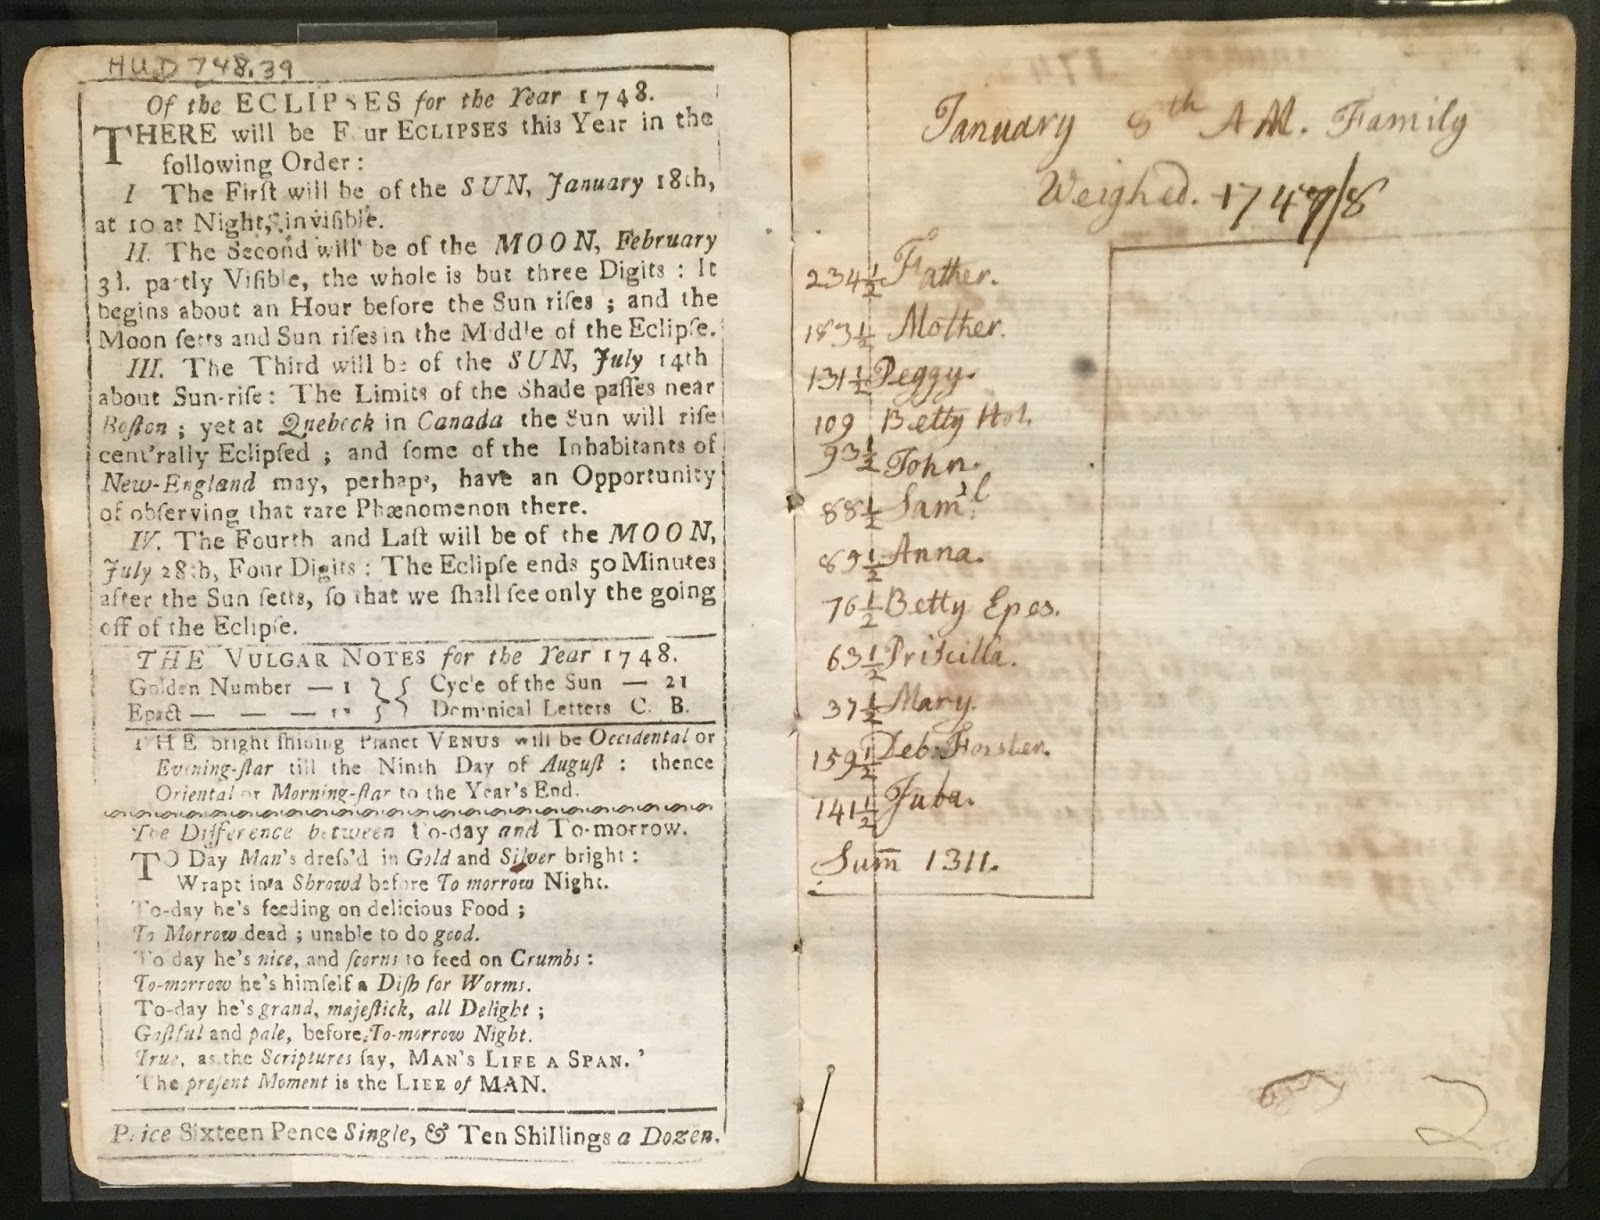 HUD 748.39
Of the ECLIPSES for the Year 1748.
THERE will be F ur ECLIPSES this Year in the
following Order:
I The Firſt will be of the SUN, January 18th,
at 10 at Night, inviſible.
II. The Second will be of the MOON, February
3d. partly Viſible, the whole is but three Digits : It
begins about an Hour before the Sun riſes ; and the
Moon ſetts and Sun riſes in the Middle of the Eclipſe.
III. The Third will be of the SUN, July 14th
about Sun-riſe: The Limits of the Shade paſſes near
Boſton ; yet at Quebeck in Canada the Sun will riſe
centrally Eclipſed ; and ſome of the Inhabitants of
New-England may, perhaps, have an Opportunity
of obſerving that rare Phænomenon there.
IV. The Fourth and Laſt will be of the MOON,
July 28th, Four Digits : The Eclipſe ends 50 Minutes
after the Sun ſetts, ſo that we ſhall ſee only the going
off of the Eclipſe.
THE VULGAR NOTES for the Year 1748.
Golden Number — 1 Cycle of the Sun — 21
Epact — — — Dominical Letters C. B.
THE bright ſhining Planet VENUS will be Occidental or
Evening-ſtar till the Ninth Day of Auguſt : thence
Oriental or Morning-ſtar to the Year's End.
The Difference between To-day and To-morrow.
TO Day Man's dreſs'd in Gold and Silver bright :
Wrapt in a Shrowd before To morrow Night.
To-day he's feeding on delicious Food ;
To Morrow dead ; unable to do good.
To day he's nice, and ſcorns to feed on Crumbs :
To-morrow he's himſelf a Diſh for Worms.
To-day he's grand, majeſtick, all Delight ;
Gaſtful and pale, before To-morrow Night.
True, as the Scriptures ſay, MAN'S LIFE A SPAN.'
The preſent Moment is the LIFE of MAN.
Price Sixteen Pence Single, & Ten Shillings a Dozen.
January 8th AM. Family
Weighed. 1747/8
234½ Father.
183½ Mother.
131½ Peggy.
109 Betty Hol.
93½ John.
88½ Sam'l.
89½ Anna.
76½ Betty Epes.
63½ Priscilla.
37½ Mary.
159½ Deb: Forster.
141½ Juba.
Sum̄ 1311.
2